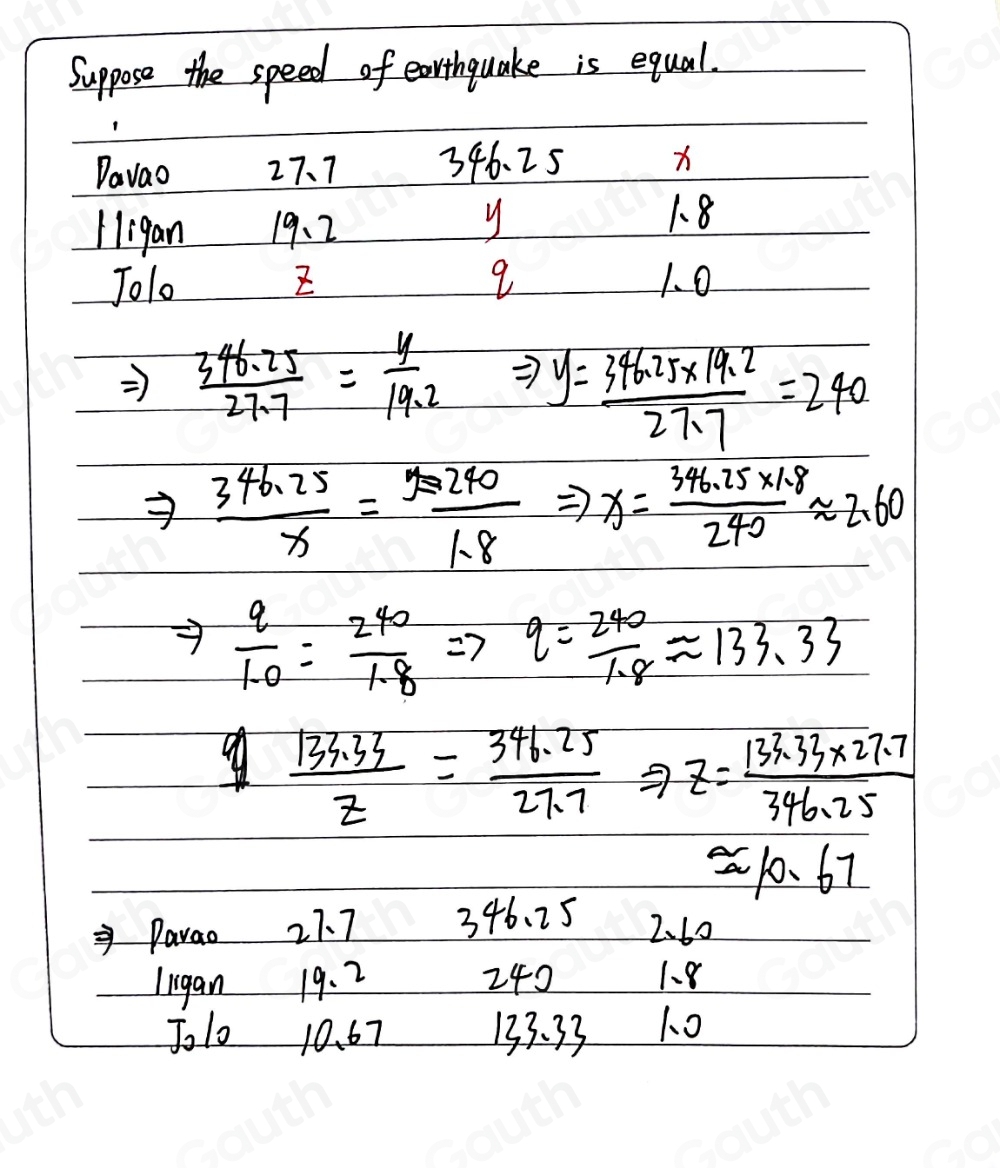 Suppose the speed of earthquake is equal.
Davao 27.7 346.25 x
Iligan 19.2 y 1.8
Jolo z q 1.0
⇒ 346.25/27.7 = y/19.2 ⇒ y = 346.25×19.2/27.7 = 240
⇒ 346.25/x = 240/1.8 ⇒ x = 346.25×1.8/240 ≈ 2.60
⇒ q/1.0 = 240/1.8 => q = 240/1.8 ≈ 133.33
133.33/z = 346.25/27.7 ⇒ z = 133.33×27.7/346.25
≈ 10.67
⇒ Davao 27.7 346.25 2.60
Iligan 19.2 240 1.8
Jolo 10.67 133.33 1.0